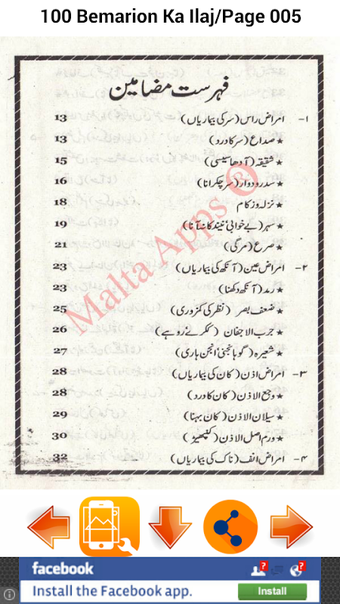 100 Bemarion Ka Ilaj/Page 005
فہرست مضامین
۱- امراض راس (سر کی بیماریاں) 13
★ صداع (سر کا درد) 13
★ شقیقہ (آدھا سیسی) 15
★ سدر و دوار (سر چکرانا) 16
★ نزلہ و زکام 18
★ سہر (بے خوابی / نیند کا نہ آنا) 19
★ صرع (مرگی) 21
۲- امراض عین (آنکھ کی بیماریاں) 23
★ رمد (آنکھ دکھنا) 23
★ ضعف بصر (نظر کی کمزوری) 25
★ جرب الاجفان (ککرے / روہے) 26
★ شعیرہ (گوہانجنی / انجن ہاری) 27
۳- امراض اذن (کان کی بیماریاں) 28
★ وجع الاذن (کان کا درد) 28
★ سیلان الاذن (کان بہنا) 29
★ ورم اصل الاذن (کنپھیڑ) 30
۴- امراض انف (ناک کی بیماریاں) 32
Malta Apps ®
facebook
Install the Facebook app.
Install